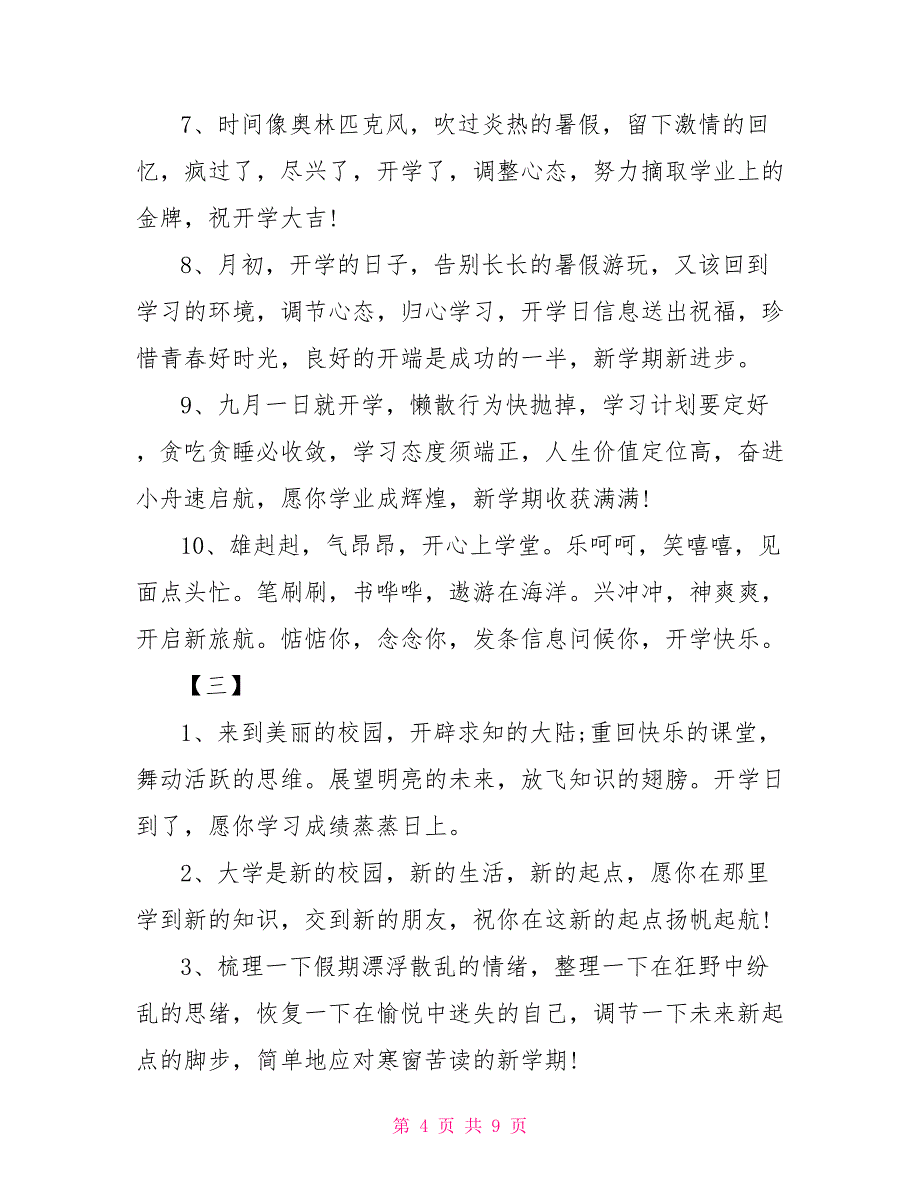 7、时间像奥林匹克风，吹过炎热的暑假，留下激情的回
忆，疯过了，尽兴了，开学了，调整心态，努力摘取学业上的
金牌，祝开学大吉!
8、月初，开学的日子，告别长长的暑假游玩，又该回到
学习的环境，调节心态，归心学习，开学日信息送出祝福，珍
惜青春好时光，良好的开端是成功的一半，新学期新进步。
9、九月一日就开学，懒散行为快抛掉，学习计划要定好
，贪吃贪睡必收敛，学习态度须端正，人生价值定位高，奋进
小舟速启航，愿你学业成辉煌，新学期收获满满!
10、雄赳赳，气昂昂，开心上学堂。乐呵呵，笑嘻嘻，见
面点头忙。笔刷刷，书哗哗，遨游在海洋。兴冲冲，神爽爽，
开启新旅航。惦惦你，念念你，发条信息问候你，开学快乐。
【三】
1、来到美丽的校园，开辟求知的大陆;重回快乐的课堂，
舞动活跃的思维。展望明亮的未来，放飞知识的翅膀。开学日
到了，愿你学习成绩蒸蒸日上。
2、大学是新的校园，新的生活，新的起点，愿你在那里
学到新的知识，交到新的朋友，祝你在这新的起点扬帆起航!
3、梳理一下假期漂浮散乱的情绪，整理一下在狂野中纷
乱的思绪，恢复一下在愉悦中迷失的自己，调节一下未来新起
点的脚步，简单地应对寒窗苦读的新学期!
第 4 页 共 9 页